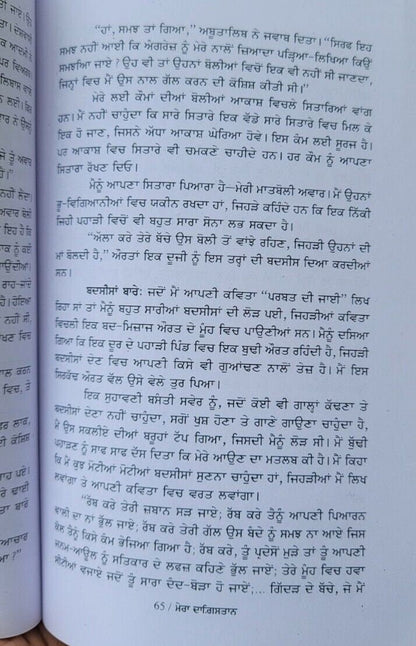 "ਹਾਂ, ਸਮਝ ਤਾਂ ਗਿਆ," ਅਬੂਤਾਲਿਬ ਨੇ ਜਵਾਬ ਦਿਤਾ। "ਸਿਰਫ ਇਹ
ਸਮਝ ਨਹੀਂ ਆਈ ਕਿ ਅੰਗਰੇਜ਼ ਨੂੰ ਮੇਰੇ ਨਾਲੋਂ ਜ਼ਿਆਦਾ ਪੜ੍ਹਿਆ-ਲਿਖਿਆ ਕਿਉਂ
ਸਮਝਿਆ ਜਾਏ? ਉਹ ਵੀ ਤਾਂ ਉਹਨਾਂ ਬੋਲੀਆਂ ਵਿਚੋਂ ਇਕ ਵੀ ਨਹੀਂ ਸੀ ਜਾਣਦਾ,
ਜਿਨ੍ਹਾਂ ਵਿਚ ਮੈਂ ਉਸ ਨਾਲ ਗੱਲ ਕਰਨ ਦੀ ਕੋਸ਼ਿਸ਼ ਕੀਤੀ ਸੀ।"
ਮੇਰੇ ਲਈ ਕੌਮਾਂ ਦੀਆਂ ਬੋਲੀਆਂ ਆਕਾਸ਼ ਵਿਚਲੇ ਸਿਤਾਰਿਆਂ ਵਾਂਗ
ਹਨ। ਮੈਂ ਨਹੀਂ ਚਾਹੁੰਦਾ ਕਿ ਸਾਰੇ ਸਿਤਾਰੇ ਇਕ ਵੱਡੇ ਸਾਰੇ ਸਿਤਾਰੇ ਵਿਚ ਮਿਲ ਕੇ
ਇਕ ਹੋ ਜਾਣ, ਜਿਸਨੇ ਅੱਧਾ ਆਕਾਸ਼ ਘੇਰਿਆ ਹੋਵੇ। ਇਸ ਕੰਮ ਲਈ ਸੂਰਜ ਹੈ।
ਪਰ ਆਕਾਸ਼ ਵਿਚ ਸਿਤਾਰੇ ਵੀ ਚਮਕਣੇ ਚਾਹੀਦੇ ਹਨ। ਹਰ ਕੌਮ ਨੂੰ ਆਪਣਾ
ਸਿਤਾਰਾ ਰੱਖਣ ਦਿਓ।
ਮੈਨੂੰ ਆਪਣਾ ਸਿਤਾਰਾ ਪਿਆਰਾ ਹੈ—ਮੇਰੀ ਮਾਤਬੋਲੀ ਅਵਾਰ। ਮੈਂ ਉਹਨਾਂ
ਭੂ-ਵਿਗਿਆਨੀਆਂ ਵਿਚ ਯਕੀਨ ਰਖਦਾ ਹਾਂ, ਜਿਹੜੇ ਕਹਿੰਦੇ ਹਨ ਕਿ ਇਕ ਨਿੱਕੀ
ਜਿਹੀ ਪਹਾੜੀ ਵਿਚੋਂ ਵੀ ਬਹੁਤ ਸਾਰਾ ਸੋਨਾ ਲਭ ਸਕਦਾ ਹੈ।
"ਅੱਲਾ ਕਰੇ ਤੇਰੇ ਬੱਚੇ ਉਸ ਬੋਲੀ ਤੋਂ ਵਾਂਝੇ ਰਹਿਣ, ਜਿਹੜੀ ਉਹਨਾਂ ਦੀ
ਮਾਂ ਬੋਲਦੀ ਹੈ," ਔਰਤਾਂ ਇਕ ਦੂਜੀ ਨੂੰ ਇਸ ਤਰ੍ਹਾਂ ਦੀ ਬਦਸੀਸ ਦਿਆ ਕਰਦੀਆਂ
ਸਨ।
ਬਦਸੀਸਾਂ ਬਾਰੇ: ਜਦੋਂ ਮੈਂ ਆਪਣੀ ਕਵਿਤਾ "ਪਰਬਤ ਦੀ ਜਾਈ" ਲਿਖ
ਰਿਹਾ ਸਾਂ ਤਾਂ ਮੈਨੂੰ ਬਹੁਤ ਸਾਰੀਆਂ ਬਦਸੀਸਾਂ ਦੀ ਲੋੜ ਪਈ, ਜਿਹੜੀਆਂ ਕਵਿਤਾ
ਵਿਚਲੀ ਇਕ ਬਦ-ਮਿਜ਼ਾਜ ਔਰਤ ਦੇ ਮੂੰਹ ਵਿਚ ਪਾਉਣੀਆਂ ਸਨ। ਮੈਨੂੰ ਦਸਿਆ
ਗਿਆ ਕਿ ਇਕ ਦੂਰ ਦੇ ਪਹਾੜੀ ਪਿੰਡ ਵਿਚ ਇਕ ਬੁਢੀ ਔਰਤ ਰਹਿੰਦੀ ਹੈ, ਜਿਹੜੀ
ਬਦਸੀਸਾਂ ਦੇਣ ਵਿਚ ਆਪਣੀ ਕਿਸੇ ਵੀ ਗੁਆਂਢਣ ਨਾਲੋਂ ਤੇਜ਼ ਹੈ। ਮੈਂ ਇਸ
ਸਿਰਕੱਢ ਔਰਤ ਵੱਲ ਉਸੇ ਵੇਲੇ ਤੁਰ ਪਿਆ।
ਇਕ ਸੁਹਾਵਣੀ ਬਸੰਤੀ ਸਵੇਰ ਨੂੰ, ਜਦੋਂ ਕੋਈ ਵੀ ਗਾਲ੍ਹਾਂ ਕੱਢਣਾ ਤੇ
ਬਦਸੀਸਾਂ ਦੇਣਾ ਨਹੀਂ ਚਾਹੁੰਦਾ, ਸਗੋਂ ਖੁਸ਼ ਹੋਣਾ ਤੇ ਗਾਣੇ ਗਾਉਣਾ ਚਾਹੁੰਦਾ ਹੈ,
ਮੈਂ ਉਸ ਸਕਲੀਏ ਦੀਆਂ ਬਰੂਹਾਂ ਟੱਪ ਗਿਆ, ਜਿਸਦੀ ਮੈਨੂੰ ਲੋੜ ਸੀ। ਮੈਂ ਬੁੱਢੀ
ਪਹਾੜਣ ਨੂੰ ਸਾਫ ਸਾਫ ਦੱਸ ਦਿਤਾ ਕਿ ਮੇਰੇ ਆਉਣ ਦਾ ਮਤਲਬ ਕੀ ਹੈ। ਮੈਂ ਕਿਹਾ
ਕਿ ਮੈਂ ਕੁਝ ਮੋਟੀਆਂ ਮੋਟੀਆਂ ਬਦਸੀਸਾਂ ਸੁਣਨਾ ਚਾਹੁੰਦਾ ਹਾਂ, ਜਿਹੜੀਆਂ ਮੈਂ ਲਿਖ
ਲਵਾਂਗਾ ਤੇ ਆਪਣੀ ਕਵਿਤਾ ਵਿਚ ਵਰਤ ਲਵਾਂਗਾ।
"ਰੱਬ ਕਰੇ ਤੇਰੀ ਜ਼ਬਾਨ ਸੜ ਜਾਏ; ਰੱਬ ਕਰੇ ਤੈਨੂੰ ਆਪਣੀ ਪਿਆਰਨ
ਵਾਲੀ ਦਾ ਨਾਂ ਭੁੱਲ ਜਾਏ; ਰੱਬ ਕਰੇ ਤੇਰੀ ਗੱਲ ਉਸ ਬੰਦੇ ਨੂੰ ਸਮਝ ਨਾ ਆਏ ਜਿਸ
ਕੋਲ ਤੈਨੂੰ ਕਿਸੇ ਕੰਮ ਭੇਜਿਆ ਗਿਆ ਹੈ; ਰੱਬ ਕਰੇ, ਤੂੰ ਪ੍ਰਦੇਸੋਂ ਮੁੜੇਂ ਤਾਂ ਤੂੰ ਆਪਣੀ
ਜਨਮ-ਆਊਲ ਨੂੰ ਸਤਿਕਾਰ ਦੇ ਲਫਜ਼ ਕਹਿਣੇ ਭੁੱਲ ਜਾਏਂ; ਤੇਰੇ ਮੂੰਹ ਵਿਚ ਹਵਾ
ਸੀਟੀਆਂ ਵਜਾਏ ਜਦੋਂ ਤੂੰ ਸਾਰਾ ਦੰਦ-ਬੋੜਾ ਹੋ ਜਾਏਂ;... ਗਿੱਦੜ ਦੇ ਬੱਚੇ, ਜੇ ਮੈਂ
65 / ਮੇਰਾ ਦਾਗ਼ਿਸਤਾਨ